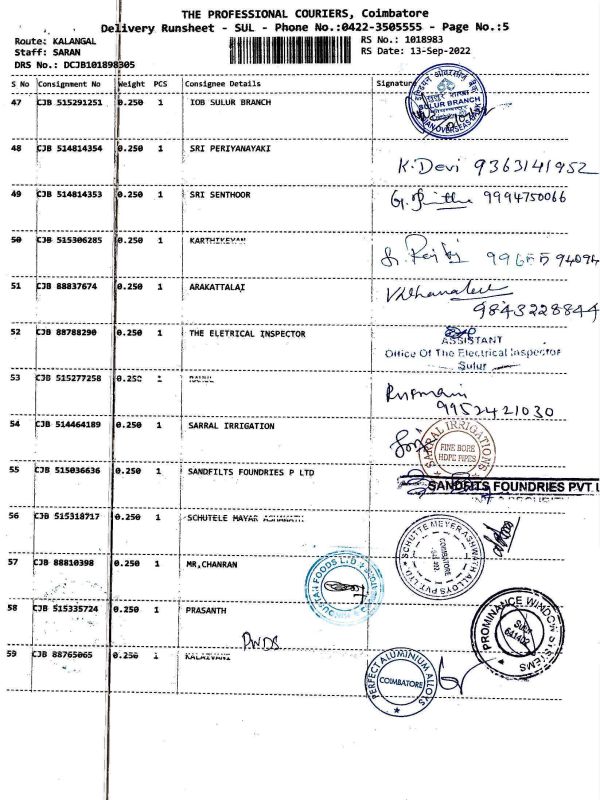 THE PROFESSIONAL COURIERS, Coimbatore
Delivery Runsheet - SUL - Phone No.:0422-3505555 - Page No.:5
Route: KALANGAL
RS No.: 1018983
Staff: SARAN
RS Date: 13-Sep-2022
DRS No.: DCJB101898305
S No Consignment No Weight PCS Consignee Details Signature
47 CJB 515291251 0.250 1 IOB SULUR BRANCH
SULUR BRANCH
48 CJB 514814354 0.250 1 SRI PERIYANAYAKI
K.Devi 9363141952
49 CJB 514814353 0.250 1 SRI SENTHOOR
9994750066
50 CJB 515306285 0.250 1 KARTHIKEYAN
51 CJB 88837674 0.250 1 ARAKATTALAI
9843228844
52 CJB 88788290 0.250 1 THE ELETRICAL INSPECTOR
ASSISTANT
Office Of The Electrical Inspector
Sulur
53 CJB 515277258 0.250 1
9952421030
54 CJB 514464189 0.250 1 SARRAL IRRIGATION
SARRAL IRRIGATIONS
FINE BORE
HDPE PIPES
55 CJB 515036636 0.250 1 SANDFILTS FOUNDRIES P LTD
SANDFITS FOUNDRIES PVT L
56 CJB 515318717 0.250 1 SCHUTELE MAYAR
SCHUTTE MEYER ASHWATH ALLOYS PVT LTD
COIMBATORE
57 CJB 88810398 0.250 1 MR,CHANRAN
FOODS LTD
58 CJB 515335724 0.250 1 PRASANTH
PWDS
PROMINANCE WINDOW SYSTEMS
Sulur
641402
59 CJB 88765065 0.250 1 KALAIVANI
PERFECT ALUMINIUM ALLOYS
COIMBATORE